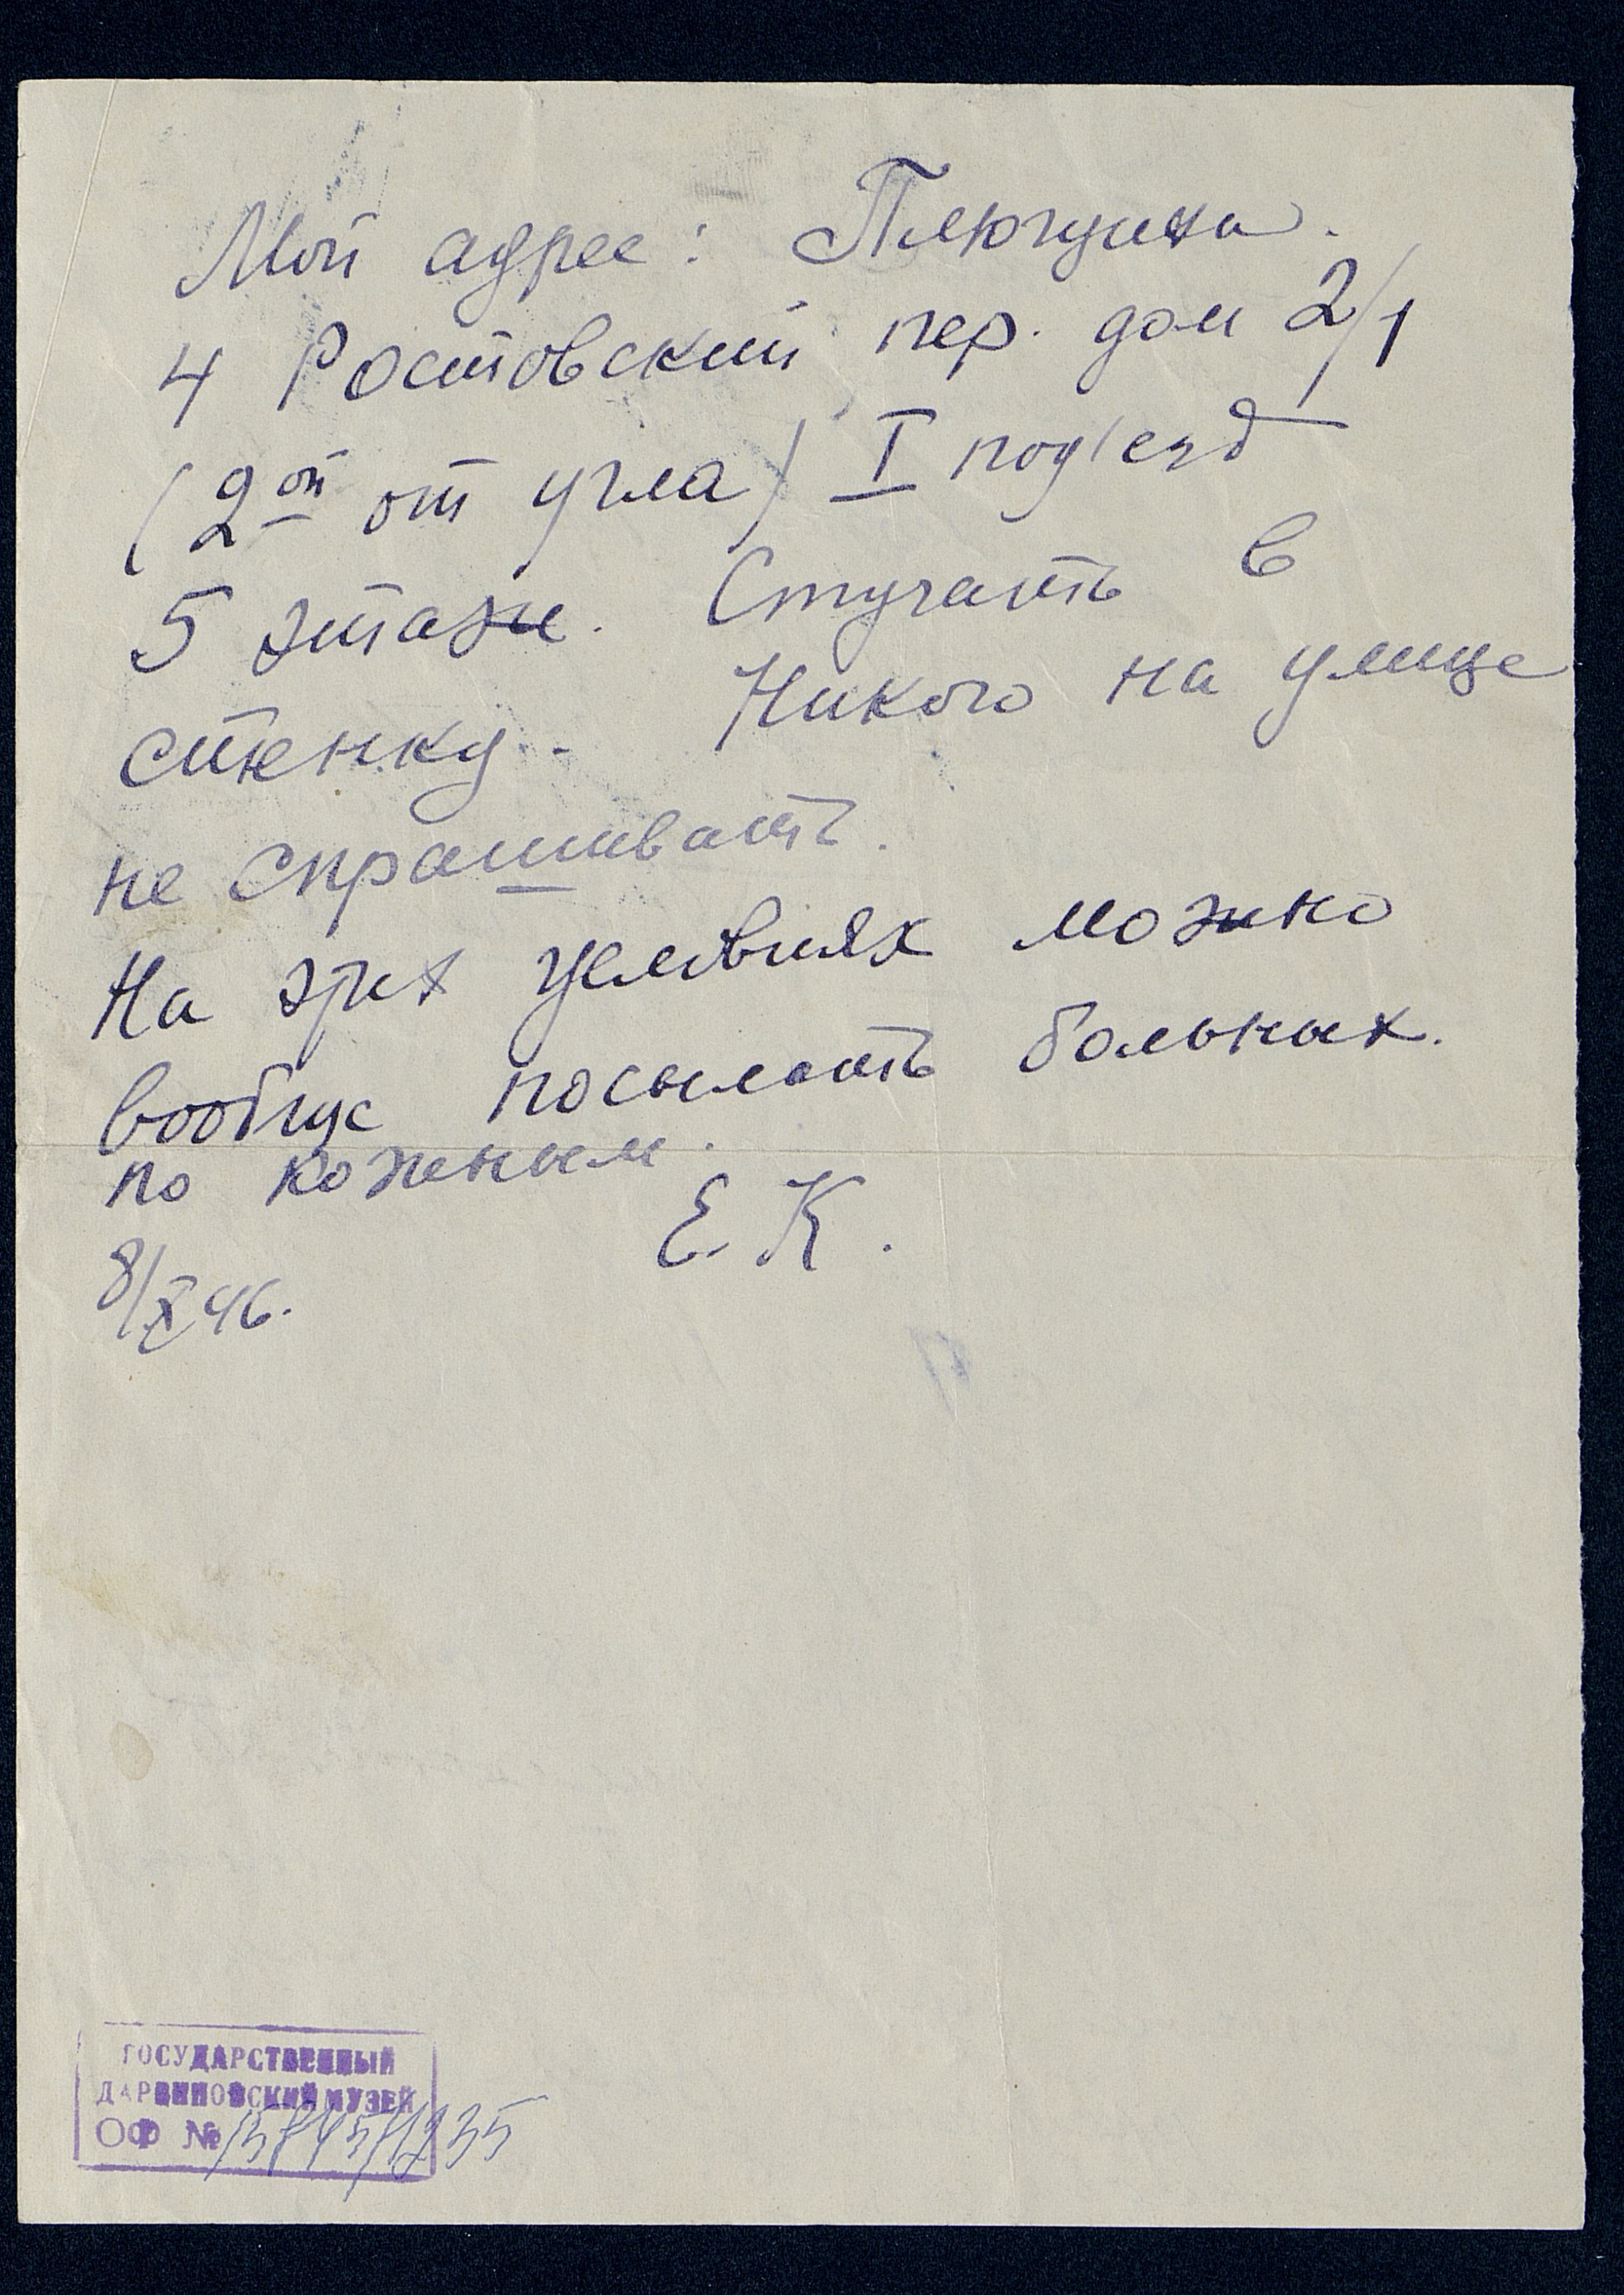 Мой адрес: Плющиха.
4 Ростовский пер. дом 2/1
(2ой от угла) I под'езд
5 этаж. Стучать в
стенку. Никого на улице
не спрашивать.
На этих условиях можно
вообще посылать больных.
по кожным.
Е. К.
8/X 46.
ГОСУДАРСТВЕННЫЙ
ДАРВИНОВСКИЙ МУЗЕЙ
ОФ №